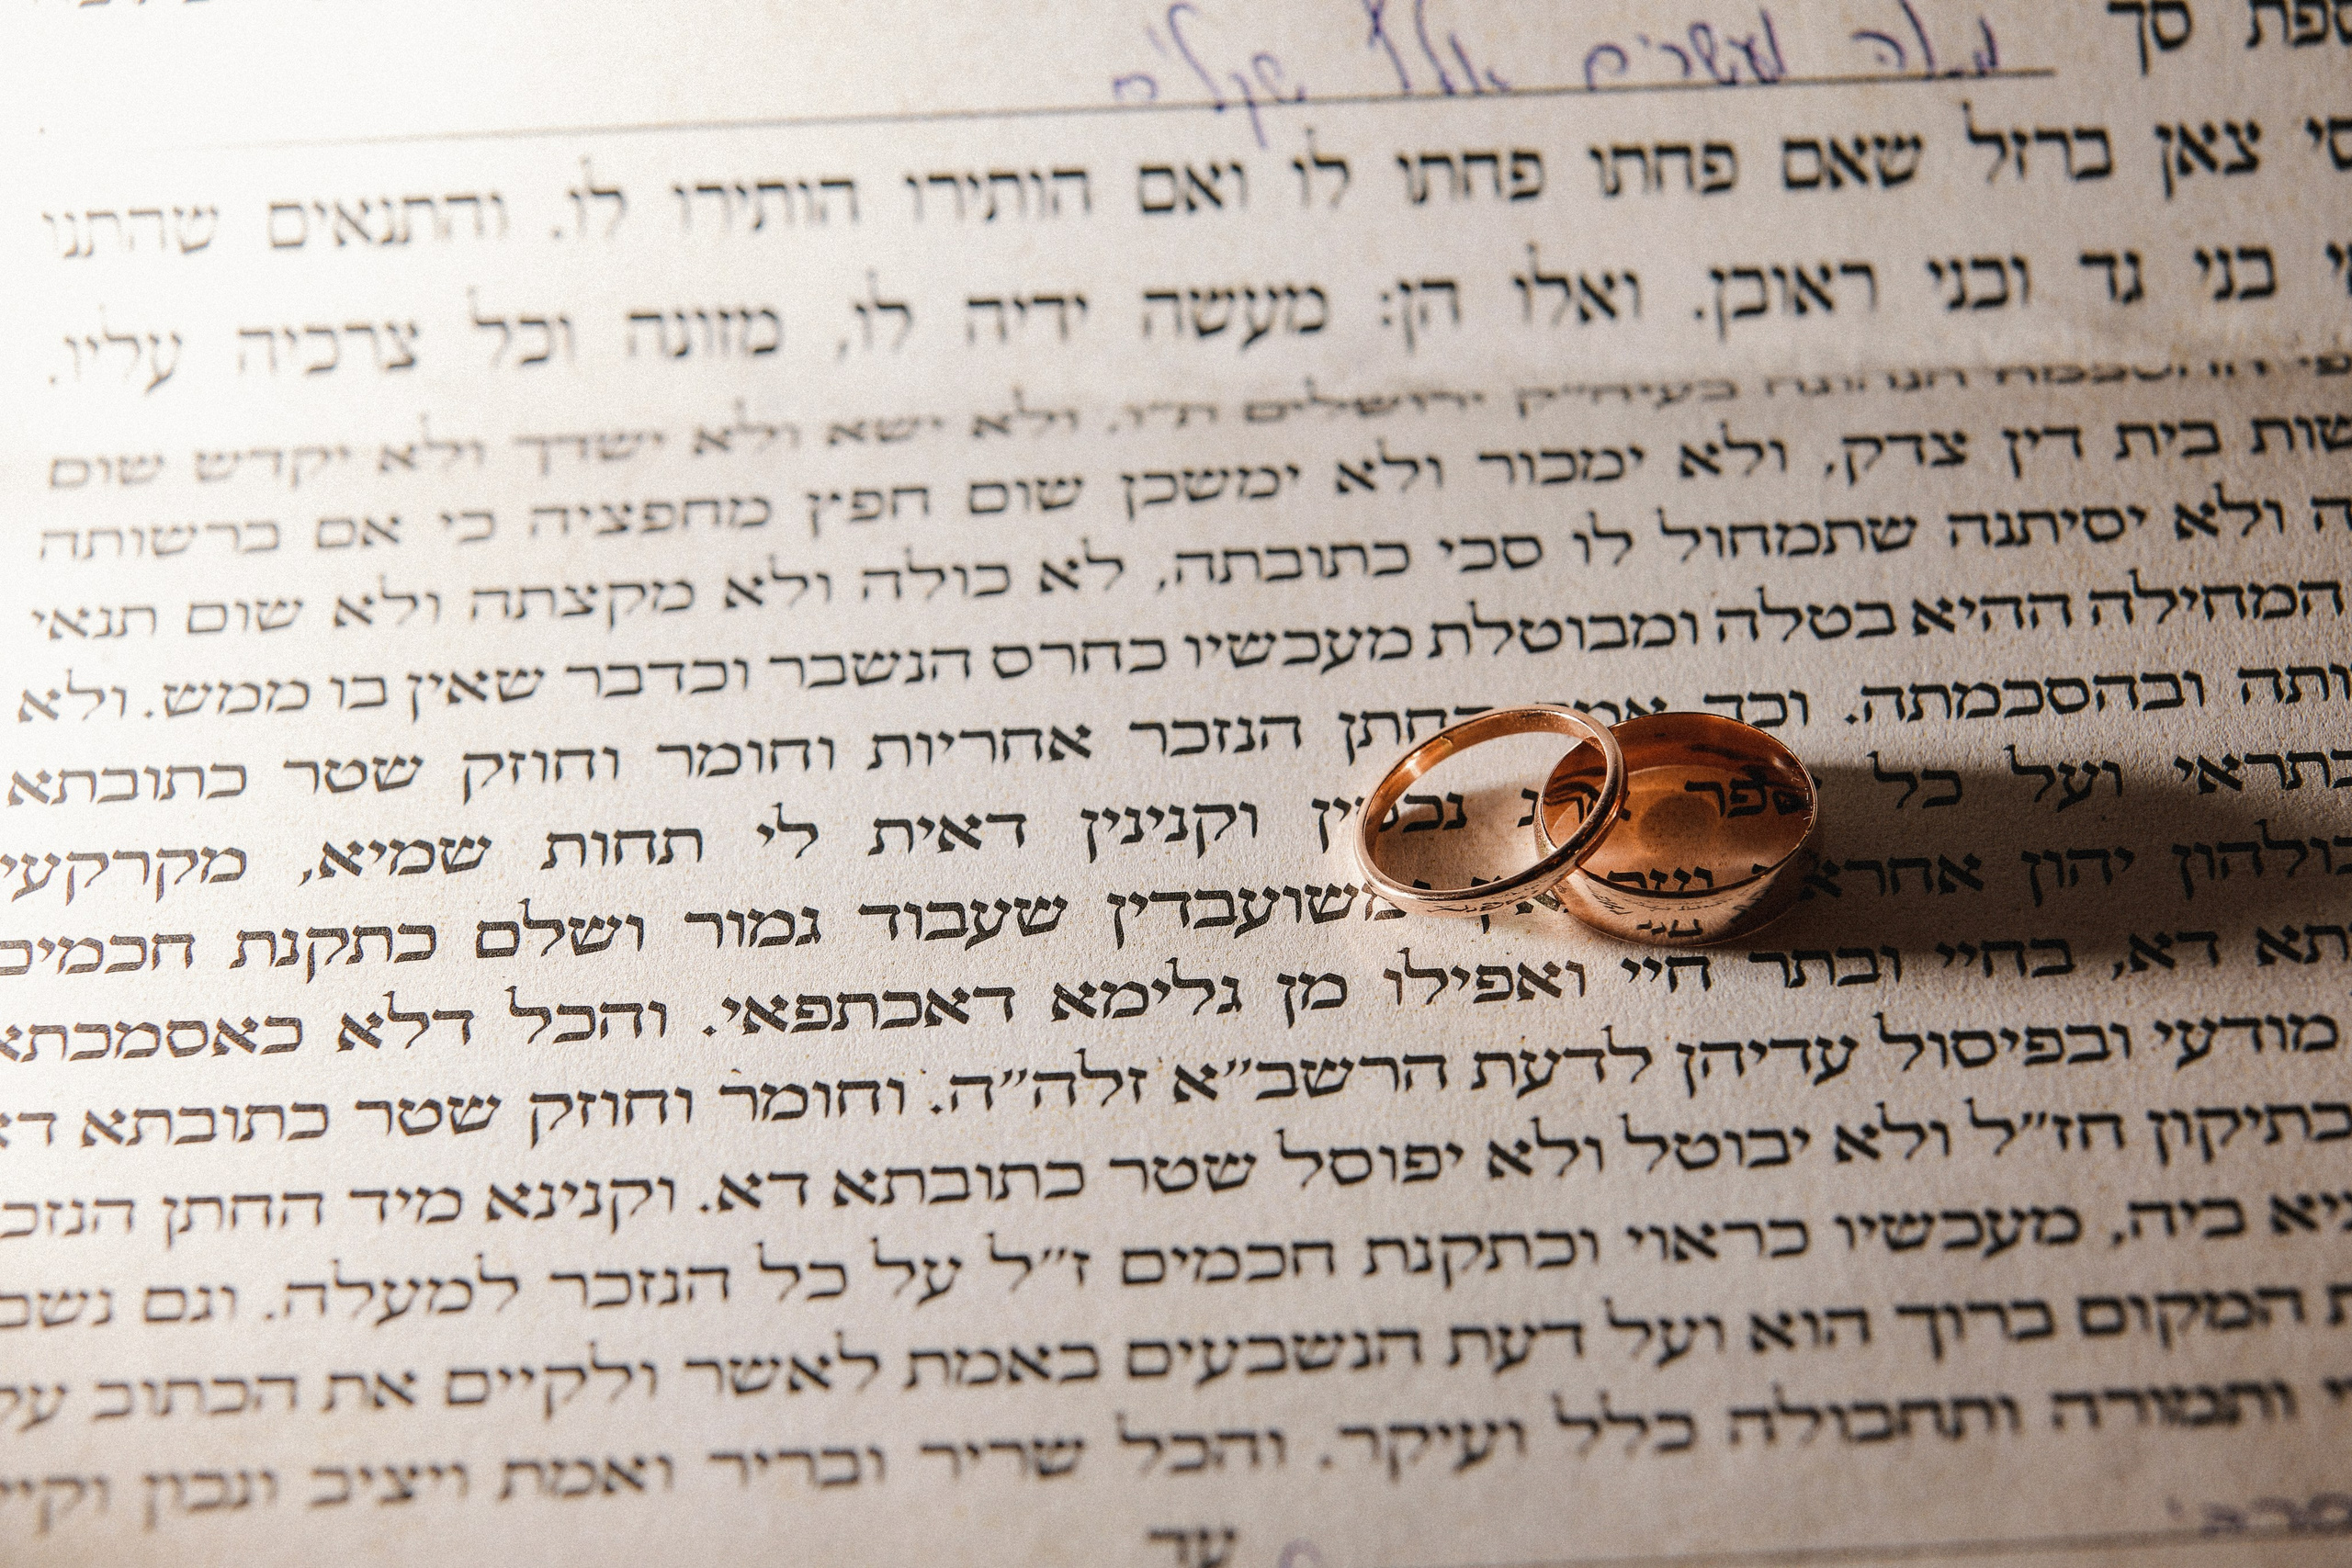 סך מאה עשרים אלף שקלים
צאן ברזל שאם פחתו פחתו לו ואם הותירו הותירו לו. והתנאים שהתנו
בני גד ובני ראובן. ואלו הן: מעשה ידיה לו, מזונה וכל צרכיה עליו.
ההסכמה הנהוגה בעיה״ק ירושלים ת״ו, ולא ישא ולא ישדך ולא יקדש שום
בית דין צדק, ולא ימכור ולא ימשכן שום חפץ מחפציה כי אם ברשותה
ולא יסיתנה שתמחול לו סכי כתובתה, לא כולה ולא מקצתה ולא שום תנאי
המחילה ההיא בטלה ומבוטלת מעכשיו כחרס הנשבר וכדבר שאין בו ממש. ולא
ובהסכמתה. וכך אמר החתן הנזכר אחריות וחומר וחוזק שטר כתובתא
בתראי ועל כל שפר ארג נכסין וקנינין דאית לי תחות שמיא, מקרקעי
כולהון יהון אחראין משועבדין שעבוד גמור ושלם כתקנת חכמים
דא, בחיי ובתר חיי ואפילו מן גלימא דאכתפאי. והכל דלא כאסמכתא
מודעי ובפיסול עדיהן לדעת הרשב״א זלה״ה. וחומר וחוזק שטר כתובתא
כתיקון חז״ל ולא יבוטל ולא יפוסל שטר כתובתא דא. וקנינא מיד החתן
ביה, מעכשיו כראוי וכתקנת חכמים ז״ל על כל הנזכר למעלה. וגם
המקום ברוך הוא ועל דעת הנשבעים באמת לאשר ולקיים את הכתוב
ותמורה ותחבולה כלל ועיקר. והכל שריר ובריר ואמת ויציב ונכון
עד